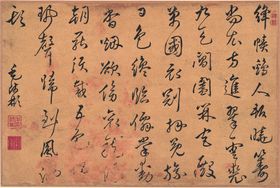 絳幘雞人報曉籌
尚衣方進翠雲裘
九天閶闔開宮殿
萬國衣冠拜冕旒
日色纔臨仙掌動
香煙欲傍袞龍浮
朝罷須裁五色詔
珮聲歸到鳳池
頭